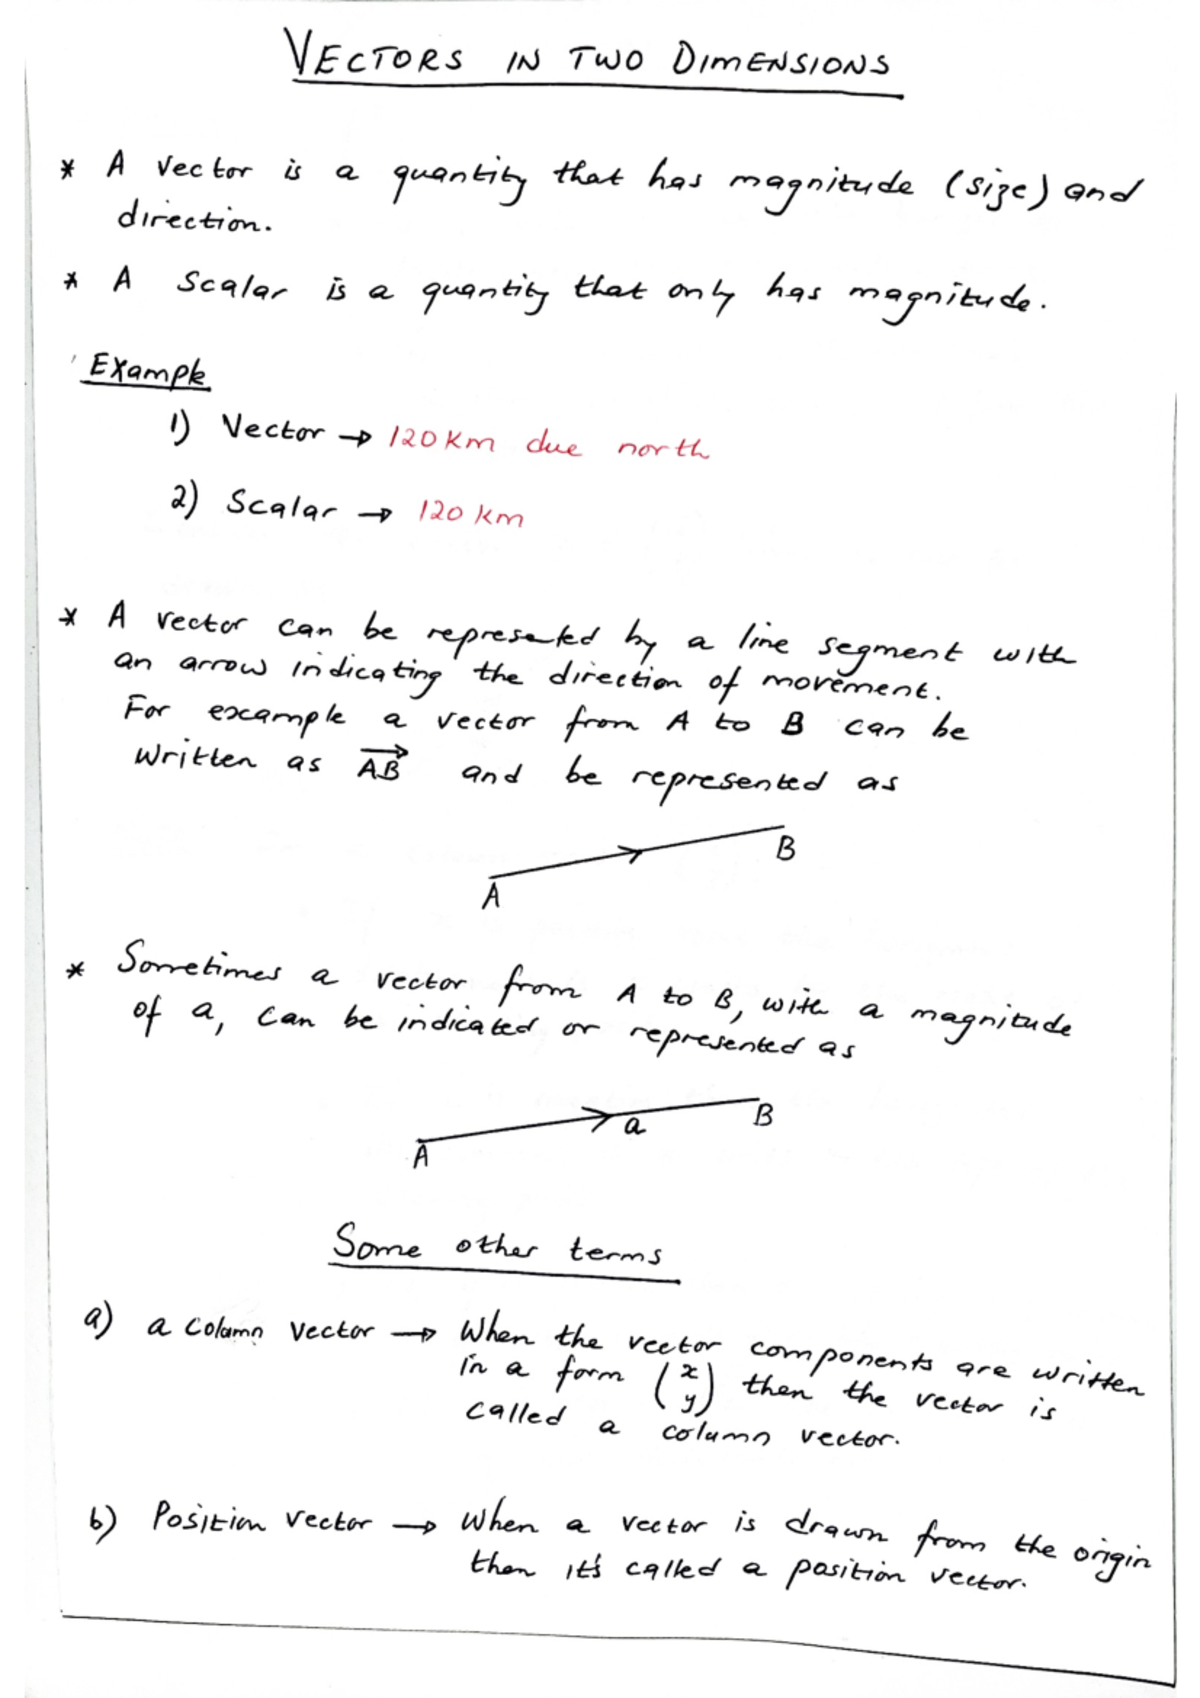 VECTORS IN TWO DIMENSIONS
* A vector is a quantity that has magnitude (size) and
direction.
* A Scalar is a quantity that only has magnitude.
Example
1) Vector → 120 km due north
2) Scalar → 120 km
* A vector can be represented by a line segment with
an arrow indicating the direction of movement.
For example a vector from A to B can be
written as \overrightarrow{AB} and be represented as
A B
* Sometimes a vector from A to B, with a magnitude
of a, can be indicated or represented as
A a B
Some other terms
a) a column vector → When the vector components are written
in a form \begin{pmatrix} x \\ y \end{pmatrix} then the vector is
called a column vector.
b) Position vector → When a vector is drawn from the origin
then it's called a position vector.